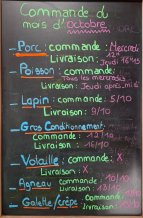 Commande du
mois d'octobre
- Porc: commande: Mercredi
Livraison: Jeudi 16/15
- Poisson: commande:
Tous les mercredis
Livraison: Jeudi après midi
- Lapin: commande: 5/10
Livraison: 9/10
- Gros Conditionnement
commande: 12/10
Livraison: 16/10
- Volaille: commande: X
Livraison: X
- Agneau commande: 10/10
Livraison:
- Galette/crêpe: